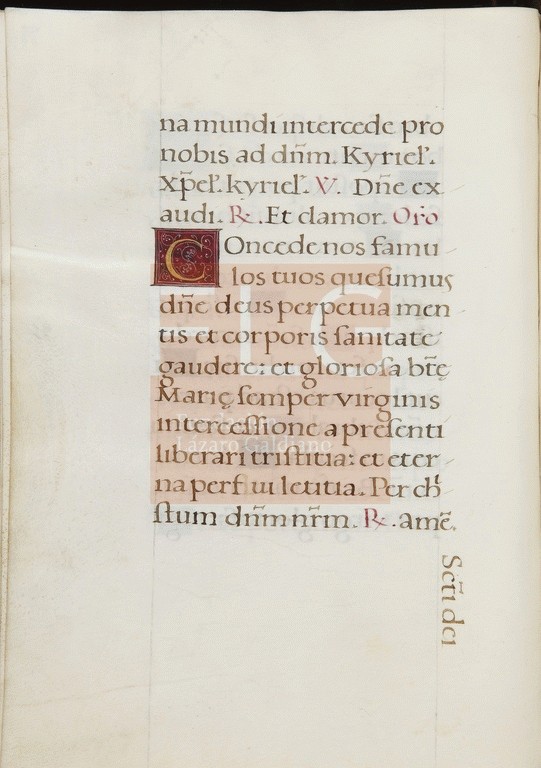 na mundi intercede pro
nobis ad dn̄m. Kyriel'.
Xp̄el'. kyriel'. V. Dn̄e ex
audi. ℞. Et clamor. Oro
Concede nos famu
los tuos quesumus
dn̄e deus perpetua men
tis et corporis ſanitate
gaudere: et glorioſa bt̄ę
Marię ſemper virginis
interceſſione a preſenti
liberari triſtitia: et eter
na perf ui letitia. Per ch
ſtum dn̄m nr̄m. ℞. amē.
Sctī dei
FLG
Fundación
Lázaro Galdiano